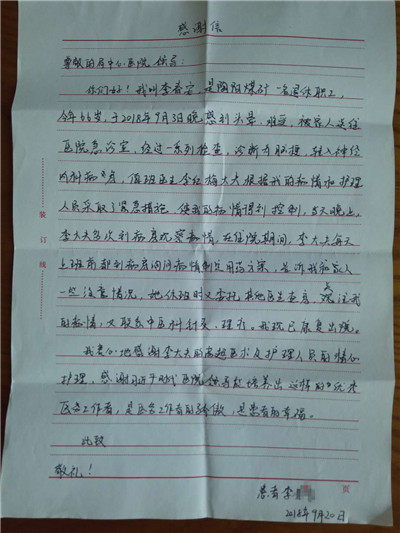 感谢信
尊敬的府中心医院领导:
你们好!我叫李春安,是陶阳煤矿一名退休职工,
今年66岁,于2018年9月3日晚感到头晕、难受,被家人送往
医院急诊室,经过一系列检查,诊断为脑梗,转入神经
内科病房,值班医生李红梅大夫根据我的病情和护理
人员采取了紧急措施,使我的病情得到控制,当天晚上,
李大夫多次到病房观察病情,在住院期间,李大夫每天
上班前都到病房询问病情制定用药方案,告诉我和家人
一些注意情况,她休班时又委托其他医生查房,关注我
的病情,又联系中医科针灸、理疗。我现已康复出院。
我衷心地感谢李大夫的高超医术及护理人员的精心
护理,感谢医院领导教培养出这样的优秀
医务工作者,是医务工作者的骄傲,是患者的幸福。
此致
敬礼!
患者 李
装订线
页
2018年9月20日